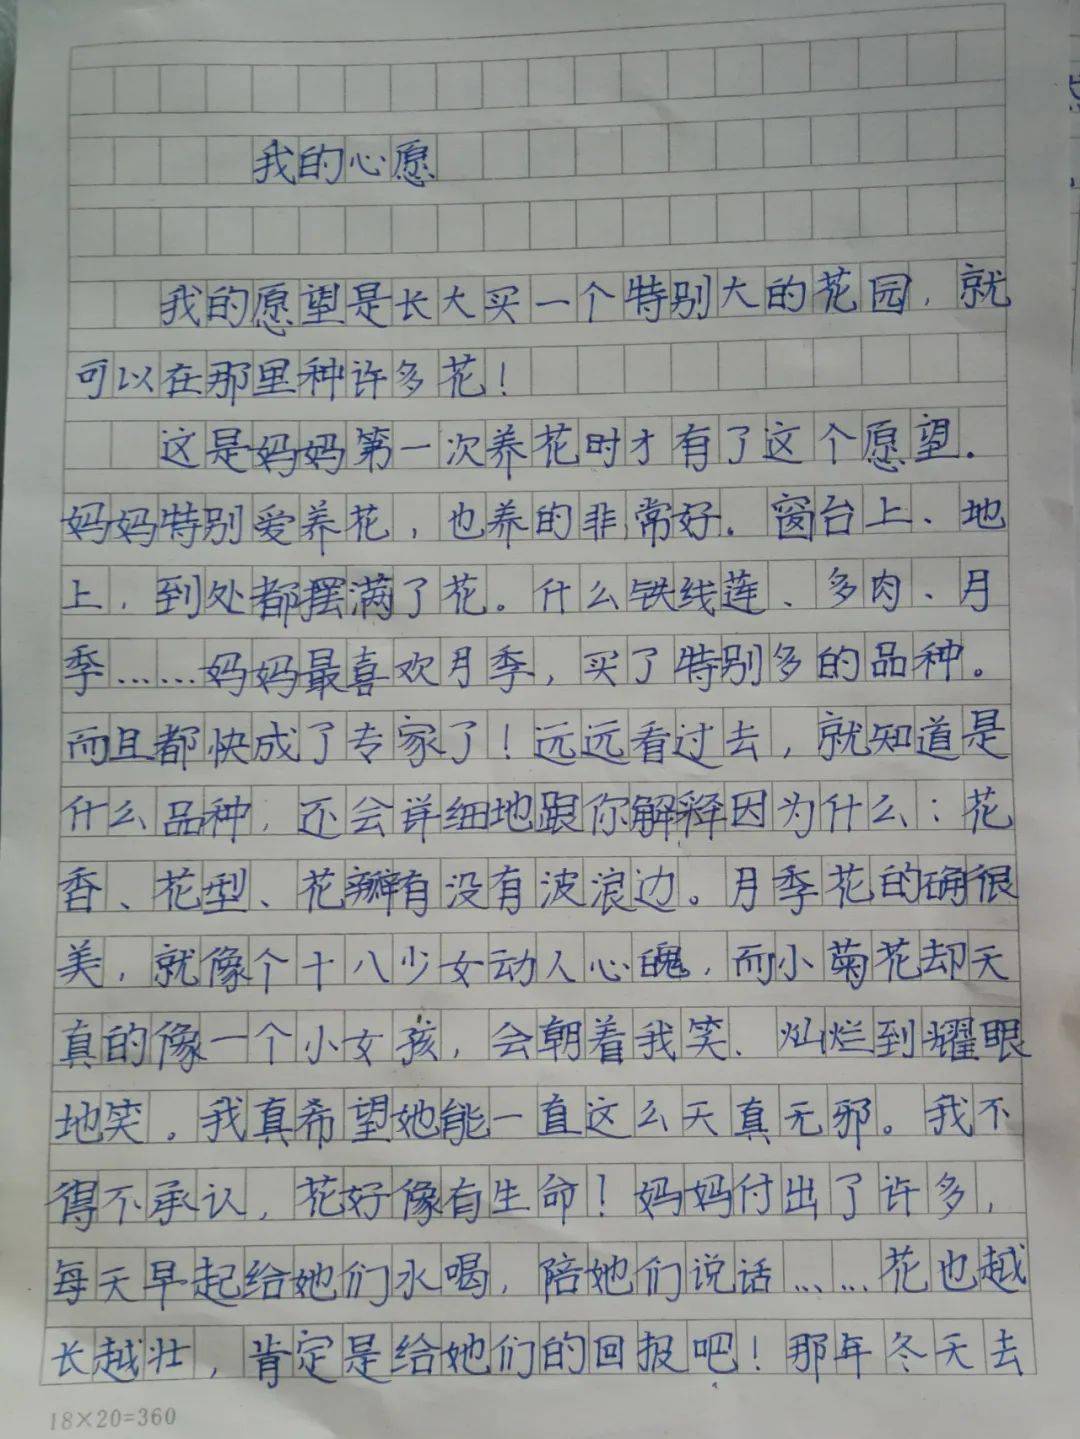 我的心愿
我的愿望是长大买一个特别大的花园，就
可以在那里种许多花！
这是妈妈第一次养花时才有了这个愿望.
妈妈特别爱养花，也养的非常好.窗台上、地
上，到处都摆满了花。什么铁线莲、多肉、月
季……妈妈最喜欢月季，买了特别多的品种。
而且都快成了专家了！远远看过去，就知道是
什么品种，还会详细地跟你解释因为什么：花
香、花型、花瓣有没有波浪边。月季花的确很
美，就像个十八少女动人心魄，而小菊花却天
真的像一个小女孩，会朝着我笑、灿烂到耀眼
地笑。我真希望她能一直这么天真无邪。我不
得不承认，花好像有生命！妈妈付出了许多，
每天早起给她们水喝，陪她们说话……花也越
长越壮，肯定是给她们的回报吧！那年冬天去
18×20=360